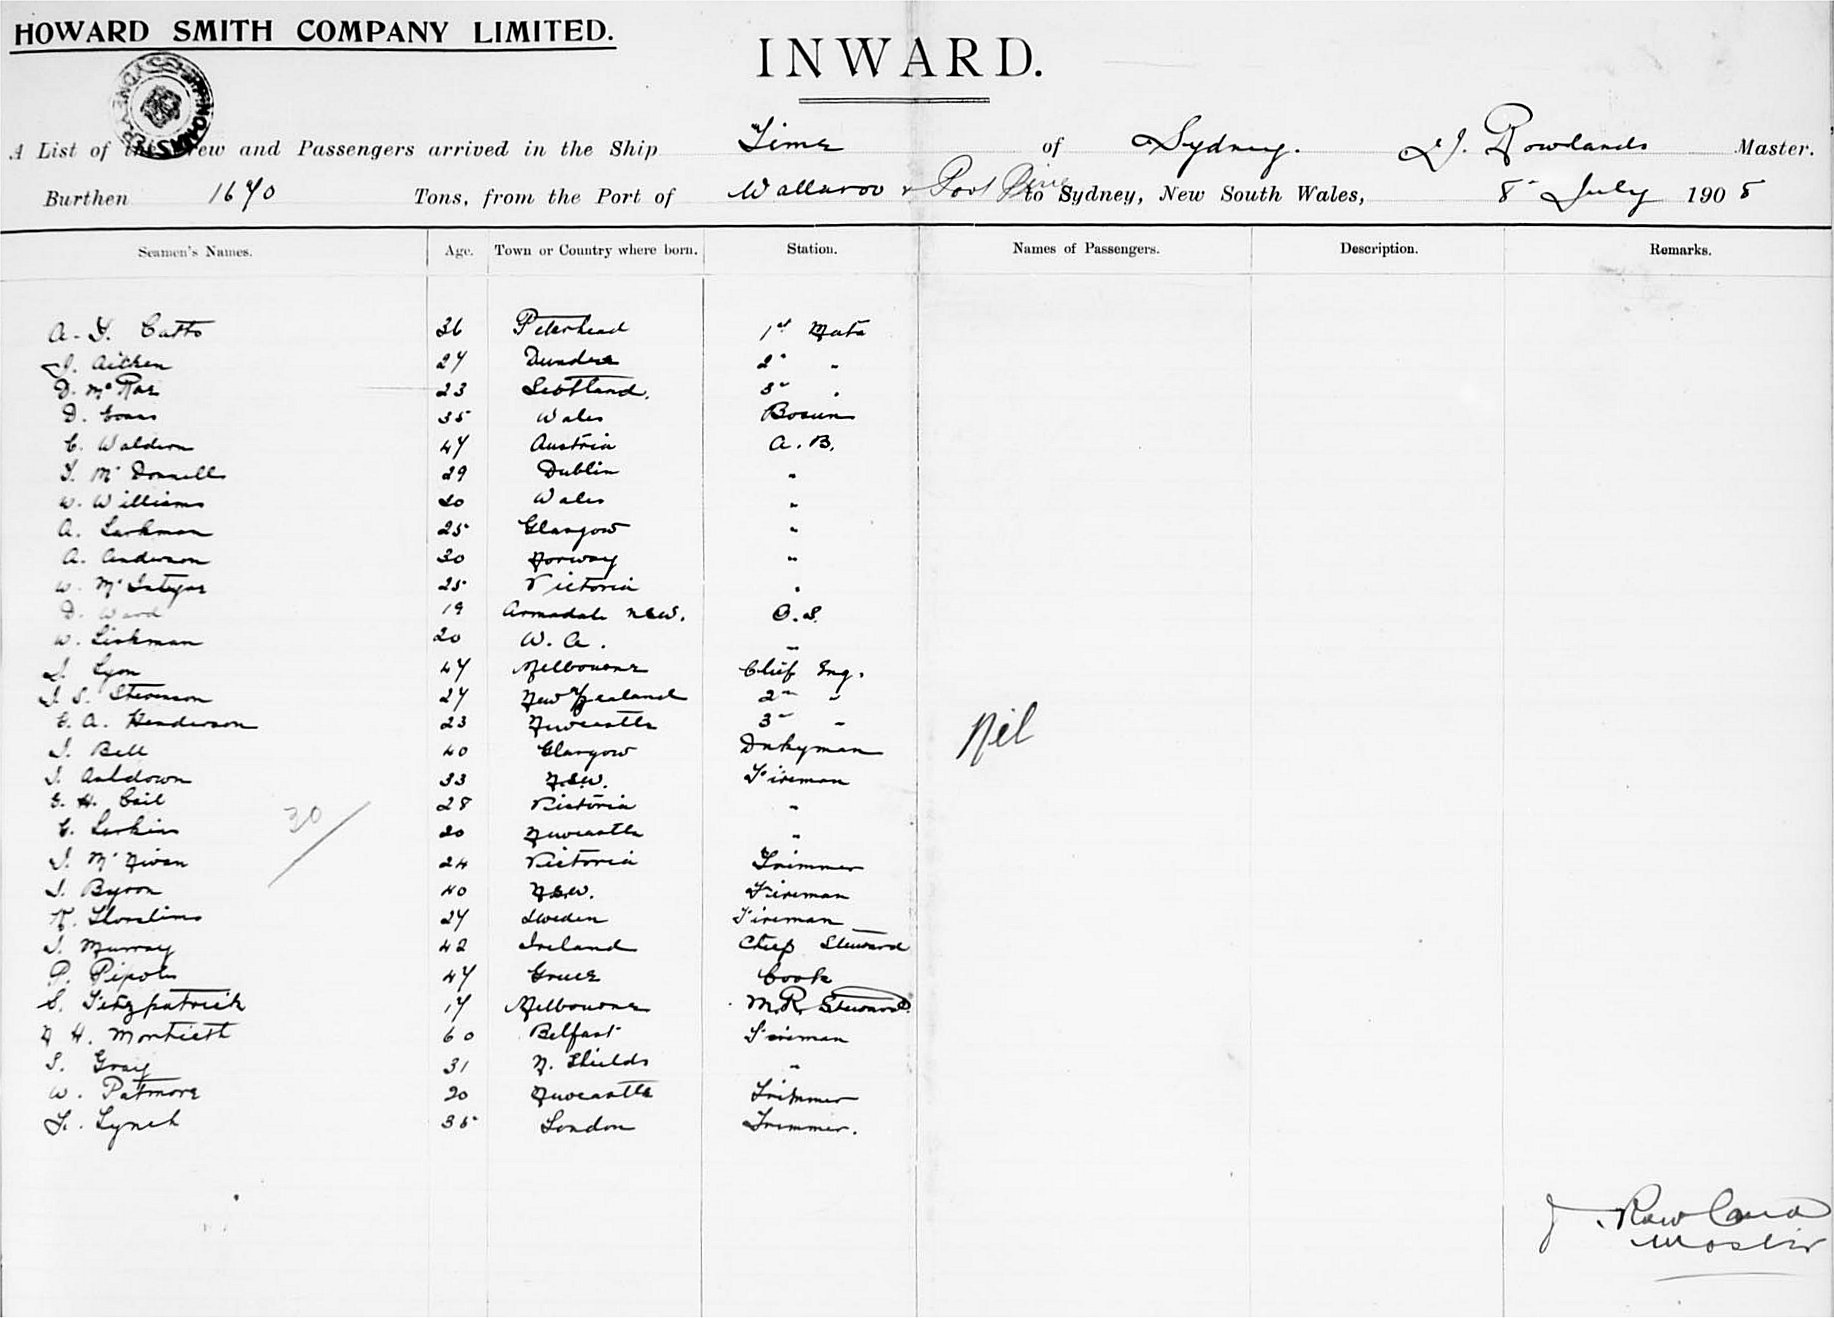 HOWARD SMITH COMPANY LIMITED.
INWARD.
A List of the Crew and Passengers arrived in the Ship Time of Sydney. J. Rowlands Master.
Burthen 1670 Tons, from the Port of Wallaroo & Port Pirie to Sydney, New South Wales, 8th July 1908
Seamen's Names. Age. Town or Country where born. Station. Names of Passengers. Description. Remarks.
A. F. Catto 36 Peterhead 1st Mate
J. Aitken 27 Dundee 2nd "
D. McRae 23 Scotland. 3rd "
D. Evans 35 Wales Bosun
C. Waldron 47 Austria A.B.
T. McDonnell 29 Dublin "
W. Williams 20 Wales "
A. Larkman 25 Glasgow "
A. Anderson 30 Norway "
W. McIntyre 25 Victoria "
D. Ward 19 Armadale NSW. O.S.
W. 20 W.A. "
J. Lyon 47 Melbourne Chief Eng.
J. S. Stevenson 27 New Zealand 2nd "
G. A. Henderson 23 Newcastle 3rd "
J. Bell 40 Glasgow Dnkyman
Nil
J. 33 N.S.W. Fireman
G. H. Cail 28 Victoria "
30/
C. Larkins 20 Newcastle "
J. McNivan 24 Victoria Trimmer
J. Byron 40 N.S.W. Fireman
K. 27 Sweden Fireman
J. Murray 42 Ireland Chief Steward
P. 47 Greece Cook
S. Fitzpatrick 17 Melbourne M.R. Steward
N. H. Montieth 60 Belfast Fireman
S. Gray 31 N. Shields "
W. Patmore 20 Newcastle Trimmer
F. Lynch 35 London Trimmer.
J. Rowland
Master